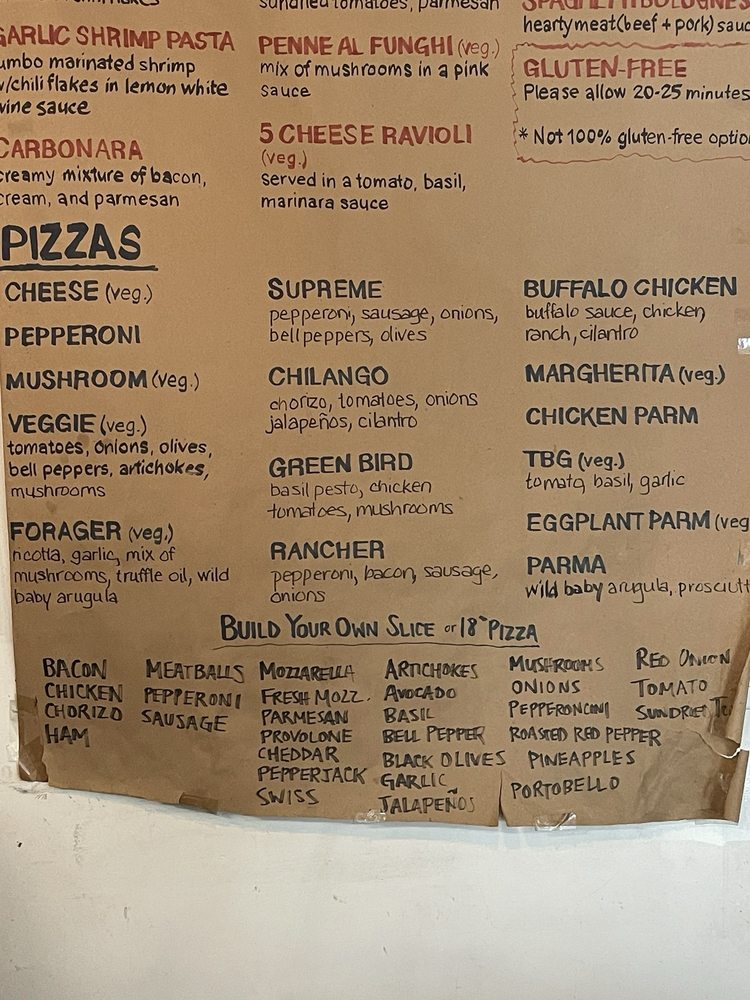 sundried tomatoes, parmesan
GARLIC SHRIMP PASTA
jumbo marinated shrimp
w/chili flakes in lemon white
wine sauce
CARBONARA
creamy mixture of bacon,
cream, and parmesan
PENNE AL FUNGHI (veg.)
mix of mushrooms in a pink
sauce
5 CHEESE RAVIOLI
(veg.)
served in a tomato, basil,
marinara sauce
hearty meat (beef + pork) sauc
GLUTEN-FREE
Please allow 20-25 minutes
* Not 100% gluten-free optio
PIZZAS
CHEESE (veg.)
PEPPERONI
MUSHROOM (veg.)
VEGGIE (veg.)
tomatoes, onions, olives,
bell peppers, artichokes,
mushrooms
FORAGER (veg.)
ricotta, garlic, mix of
mushrooms, truffle oil, wild
baby arugula
SUPREME
pepperoni, sausage, onions,
bell peppers, olives
CHILANGO
chorizo, tomatoes, onions
jalapeños, cilantro
GREEN BIRD
basil pesto, chicken
tomatoes, mushrooms
RANCHER
pepperoni, bacon, sausage,
onions
BUFFALO CHICKEN
buffalo sauce, chicken,
ranch, cilantro
MARGHERITA (veg.)
CHICKEN PARM
TBG (veg.)
tomato, basil, garlic
EGGPLANT PARM (veg
PARMA
wild baby arugula, prosciutt
BUILD YOUR OWN SLICE or 18" PIZZA
BACON
CHICKEN
CHORIZO
HAM
MEATBALLS
PEPPERONI
SAUSAGE
MOZZARELLA
FRESH MOZZ.
PARMESAN
PROVOLONE
CHEDDAR
PEPPERJACK
SWISS
ARTICHOKES
AVOCADO
BASIL
BELL PEPPER
BLACK OLIVES
GARLIC
JALAPEÑOS
MUSHROOMS
ONIONS
PEPPERONCINI
ROASTED RED PEPPER
PINEAPPLES
PORTOBELLO
RED ONION
TOMATO
SUNDRIED To